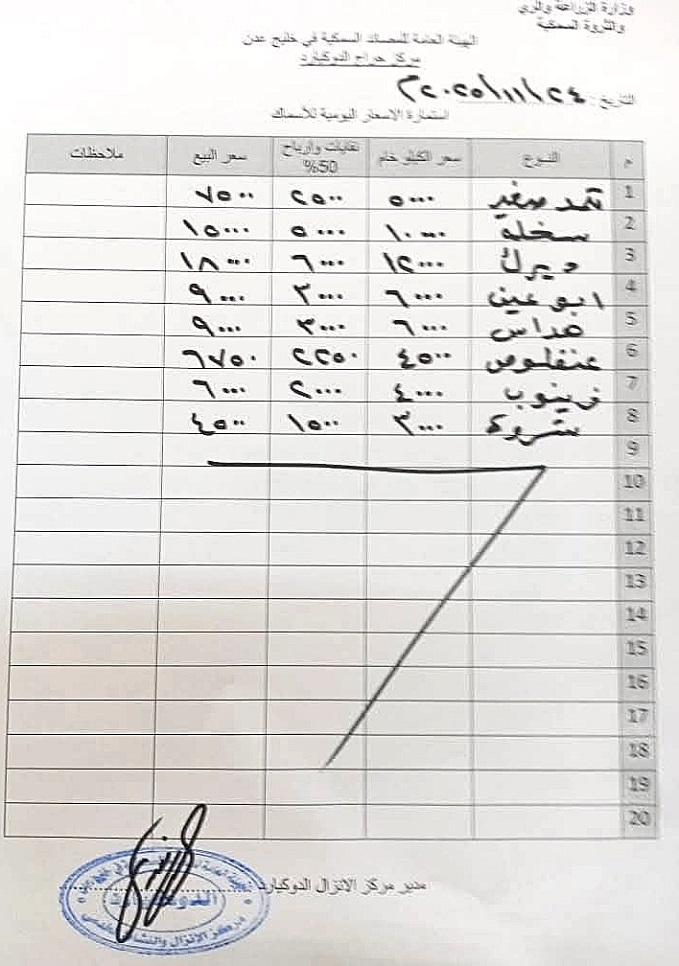 وزارة الزراعة والري
والثروة السمكية
الهيئة العامة للمصائد السمكية في خليج عدن
مركز حراج الدوكيارد
التاريخ: ٢٠٢٥/١١/٢٤م
استمارة الاسعار اليومية للأسماك
م النوع سعر الكيلو خام نفايات وأرباح 50% سعر البيع ملاحظات
1 ثمد صغير ٥٠٠٠ ٢٥٠٠ ٧٥٠٠
2 سخلة ١٠٠٠٠ ٥٠٠٠ ١٥٠٠٠
3 ديرك ١٢٠٠٠ ٦٠٠٠ ١٨٠٠٠
4 ابو عين ٦٠٠٠ ٣٠٠٠ ٩٠٠٠
5 هداس ٦٠٠٠ ٣٠٠٠ ٩٠٠٠
6 عنفلوص ٤٥٠٠ ٢٢٥٠ ٦٧٥٠
7 زينوب ٤٠٠٠ ٢٠٠٠ ٦٠٠٠
8 شروة ٣٠٠٠ ١٥٠٠ ٤٥٠٠
9
10
11
12
13
14
15
16
17
18
19
20
مدير مركز الانزال الدوكيارد
مركز الإنزال والنشاط السمكي